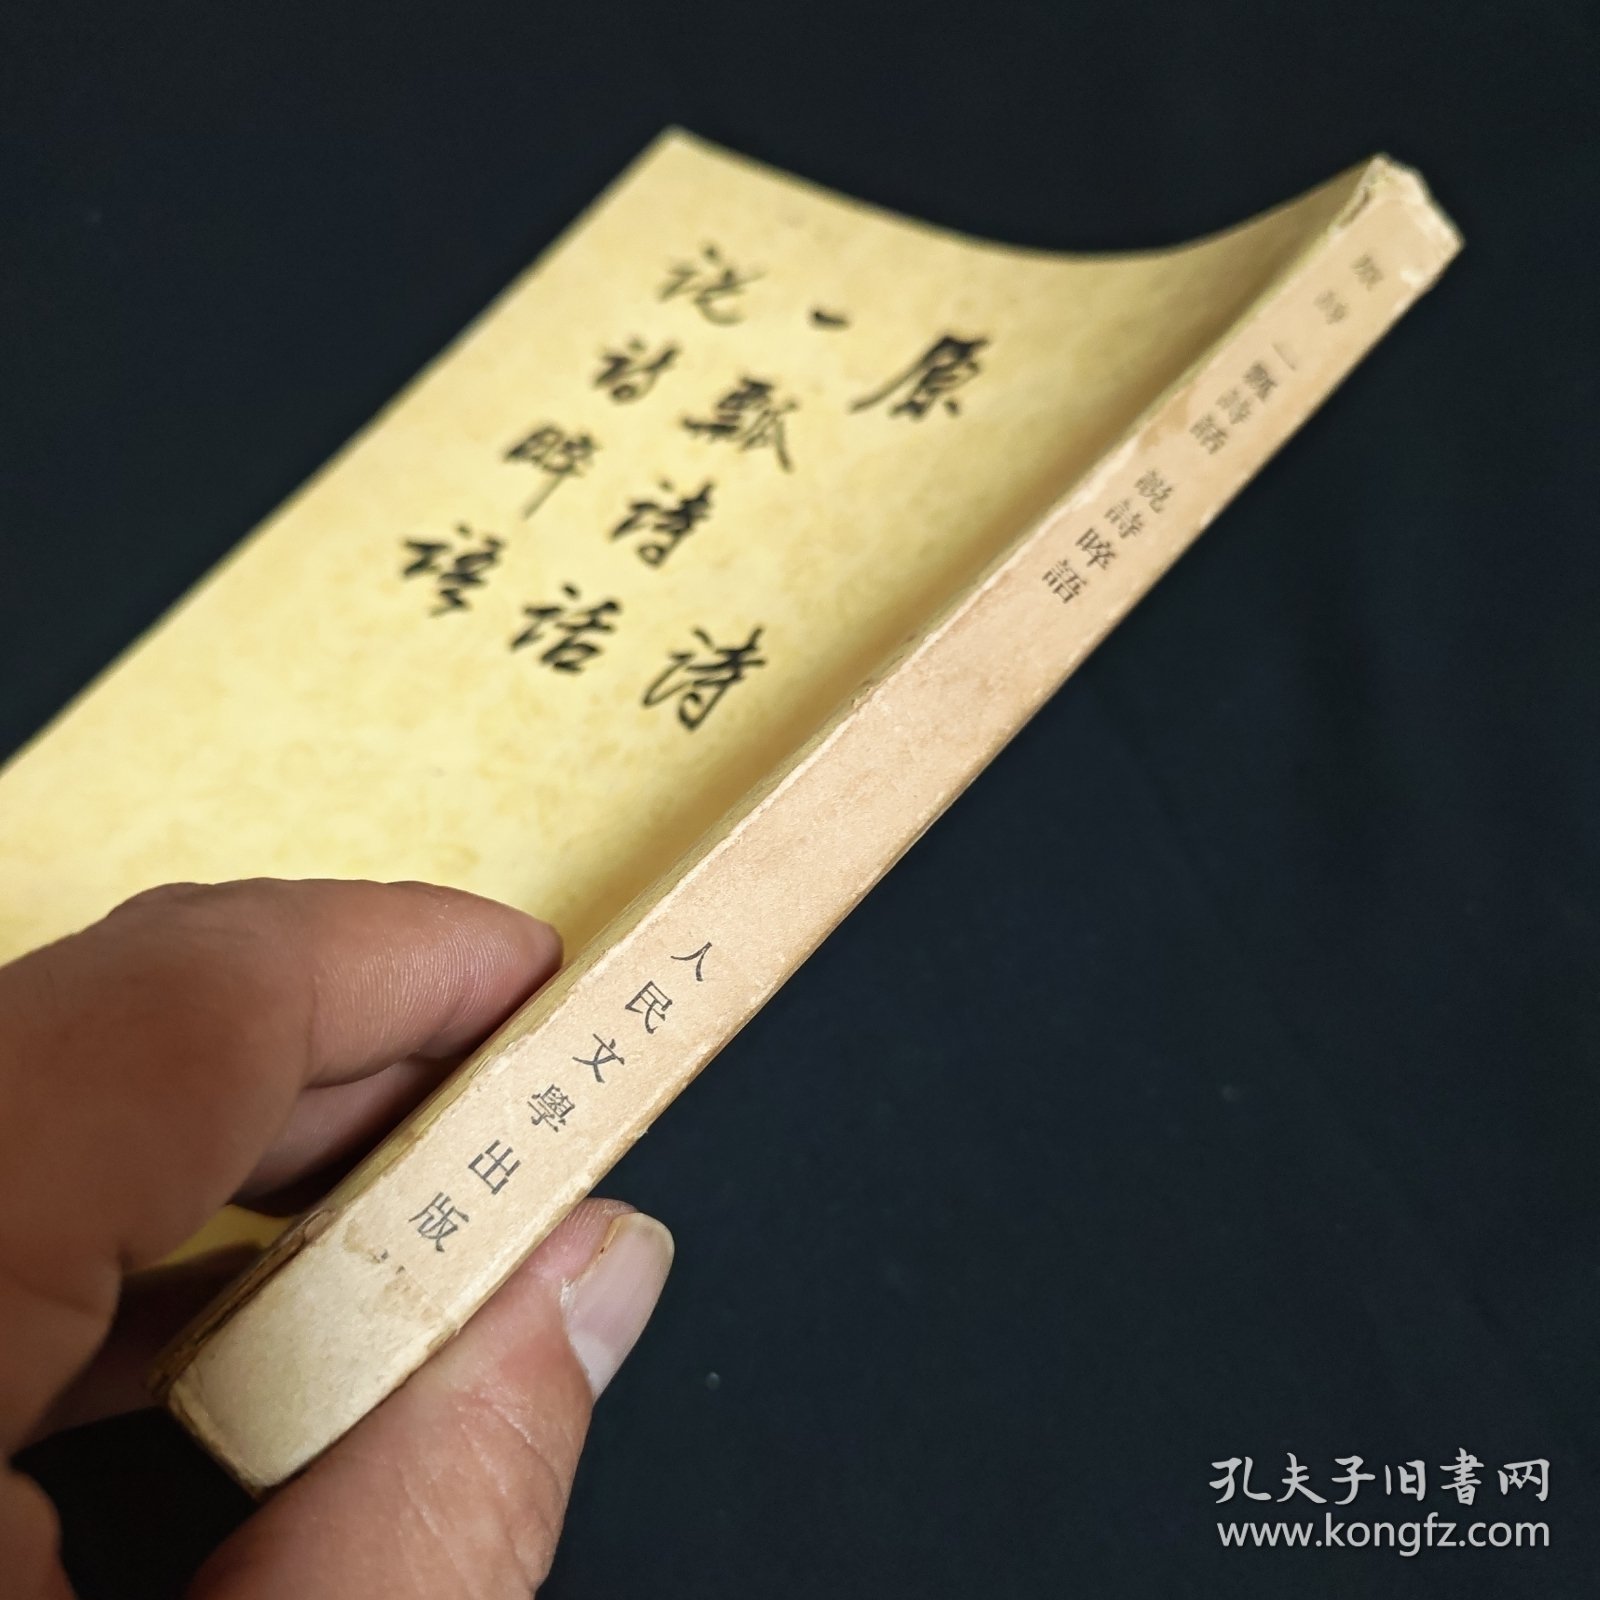 原诗
一瓢诗话
说诗晬语
原詩 一瓢詩話 説詩晬語
人民文學出版
孔夫子旧書网
www.kongfz.com